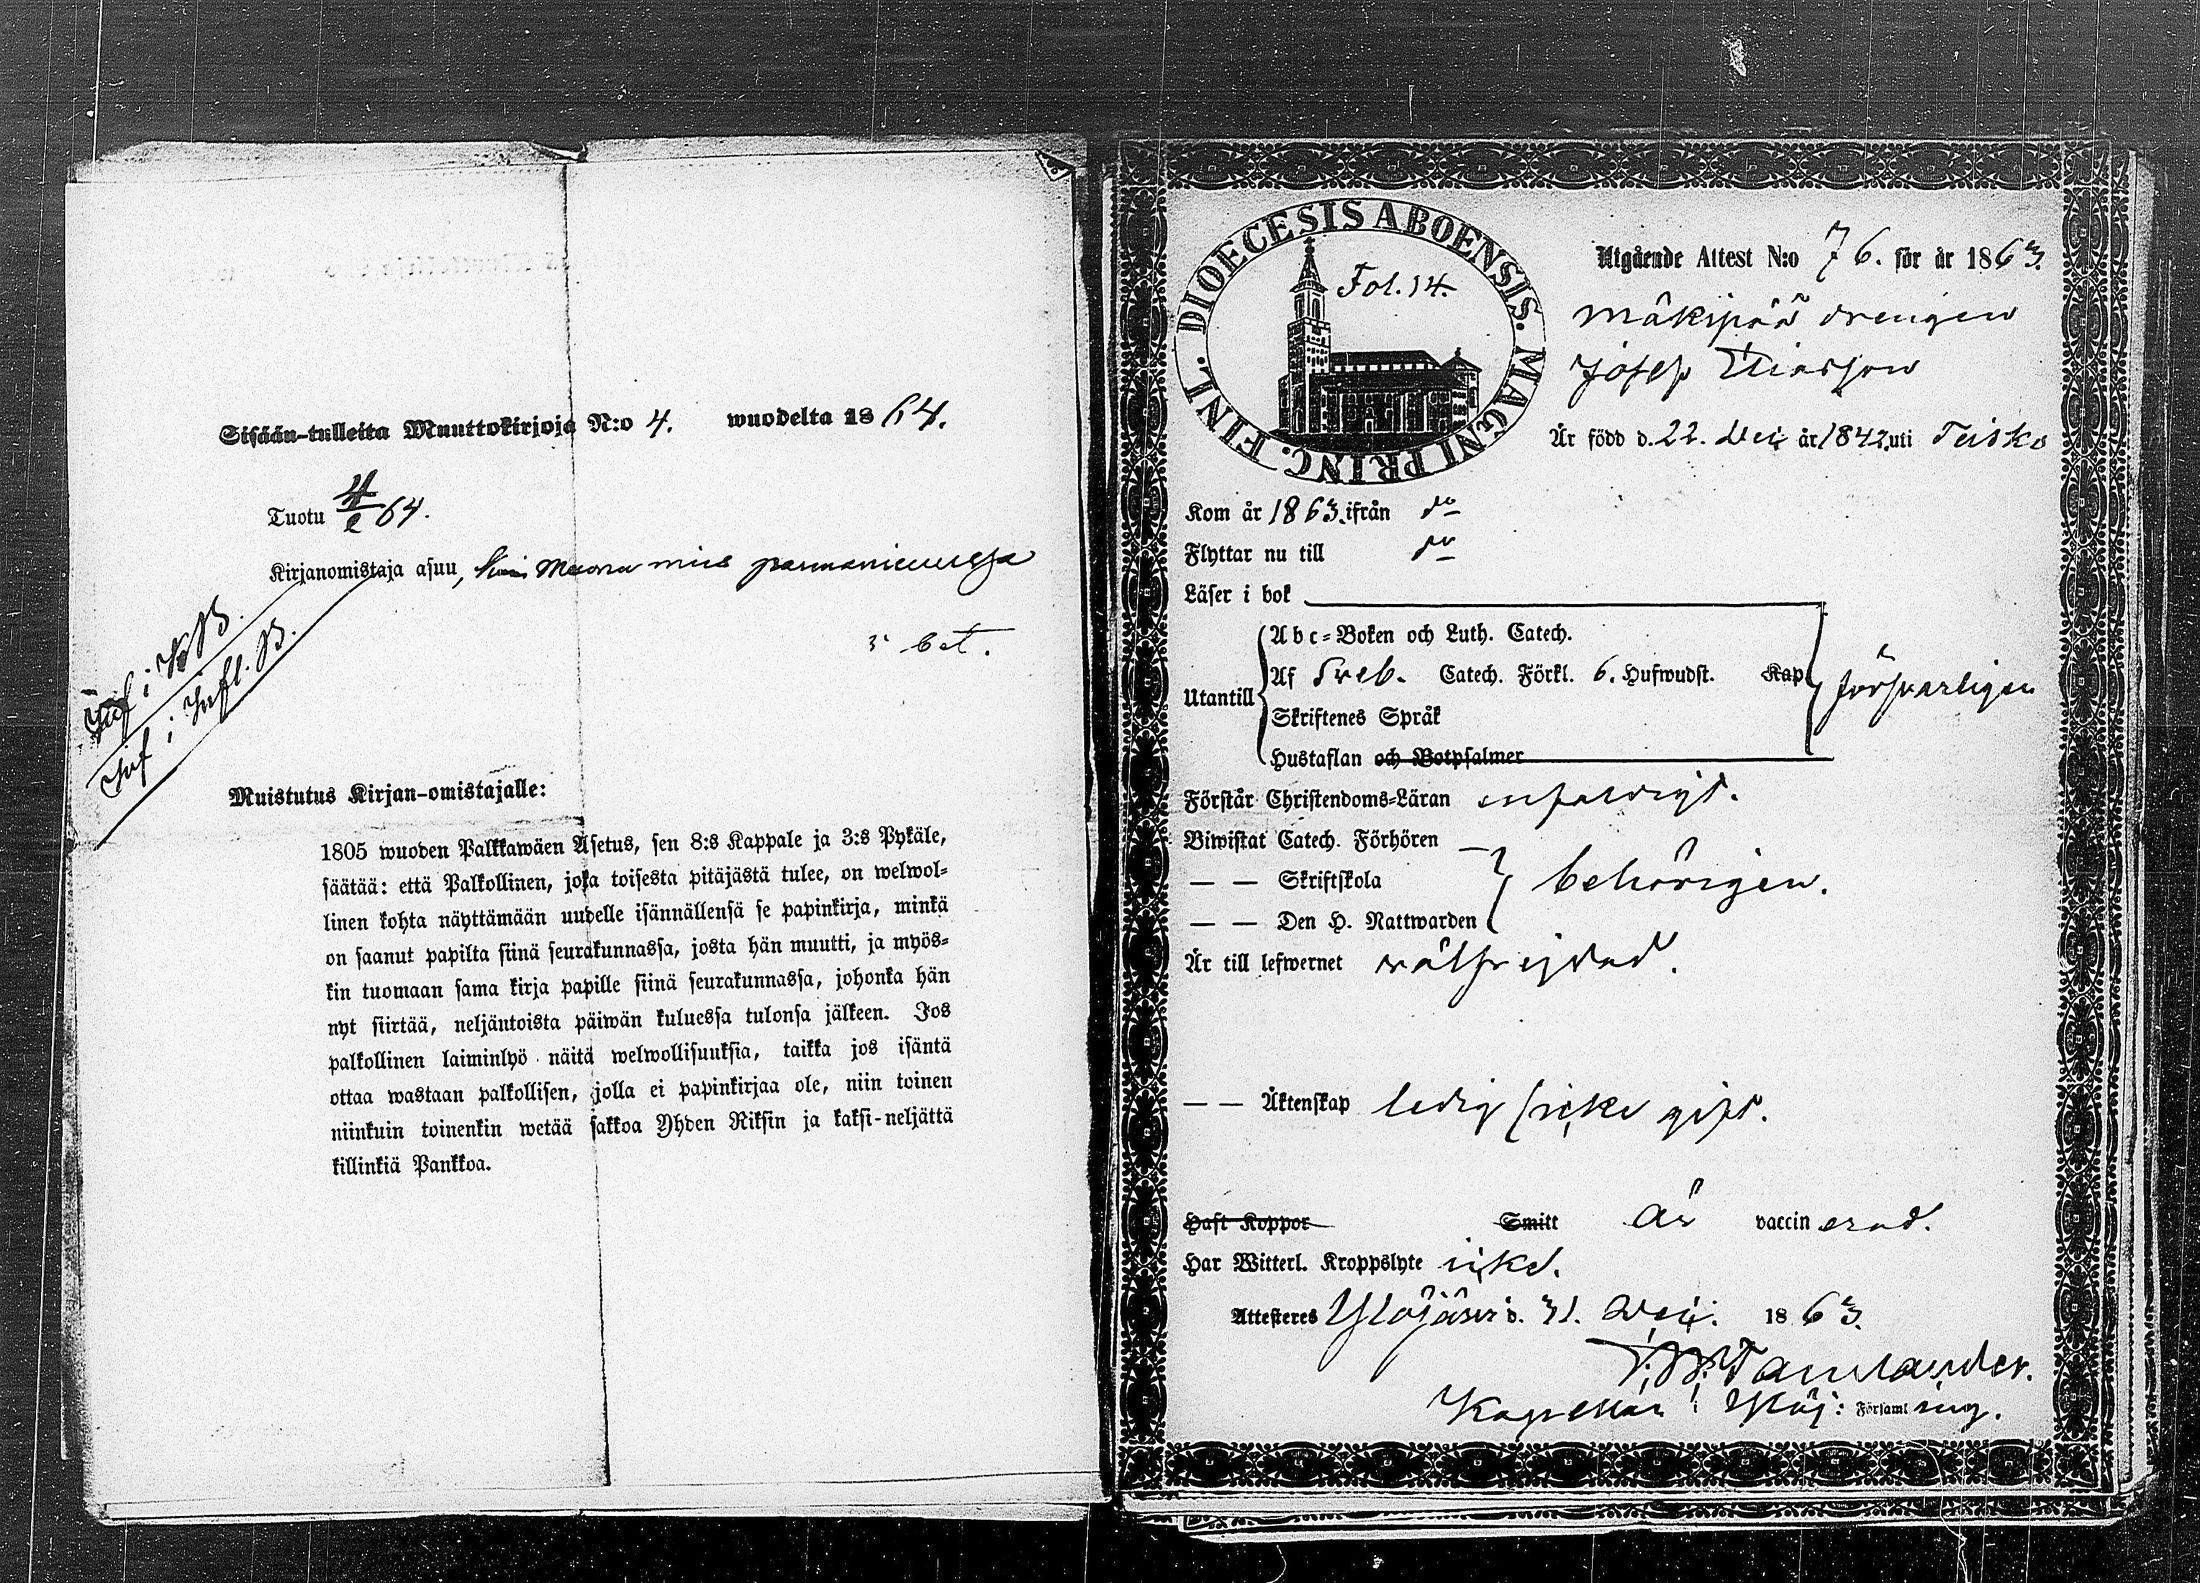 Sisään-tulleita Muuttokirjoja N:o 4. wuodelta 18 64.
Tuotu 4/2 64.
Kirjanomistaja asuu,
Inf i KB.
Inf i Infl. B.
Muistutus Kirjan-omistajalle:
1805 wuoden Palkkawäen Asetus, sen 8:s Kappale ja 3:s Pykäle,
säätää: että Palkollinen, joka toisesta pitäjästä tulee, on welwol-
linen kohta näyttämään uudelle isännällensä se papinkirja, minkä
on saanut papilta siinä seurakunnassa, josta hän muutti, ja myös-
kin tuomaan sama kirja papille siinä seurakunnassa, johonka hän
nyt siirtää, neljäntoista päiwän kuluessa tulonsa jälkeen. Jos
palkollinen laiminlyö näitä welwollisuuksia, taikka jos isäntä
ottaa wastaan palkollisen, jolla ei papinkirjaa ole, niin toinen
niinkuin toinenkin wetää sakkoa Yhden Riksin ja kaksi-neljättä
killinkiä Pankkoa.
DIOECESIS ABOENSIS. MAGNI PRINC. FINL.
Fol. 14.
Utgående Attest N:o 76. för år 1863.
Mäkipää drengen
Josep Eliasson
Är född d. 22. Dec. år 1842. uti Teisko
Kom år 1863. ifrån do
Flyttar nu till do
Läser i bok
Utantill
Abc-Boken och Luth. Catech.
Af Sveb. Catech. Förkl. 6. Hufwudst. Kap
Skriftenes Språk
Hustaflan och Botpsalmer
försvarligen
Förstår Christendoms-Läran enfaldigt.
Biwistat Catech. Förhören
— — Skriftskola
— — Den H. Nattwarden
behörigen.
Är till lefwernet välfrejdad.
— — Äktenskap ledig till icke gift.
Haft Koppor Smitt är vaccinerad.
Har Witterl. Kroppslyte icke.
Attesteras Ylöjärvi d. 31. Dec. 1863.
Tamlander.
Kapellan i Ylöj: Församling.